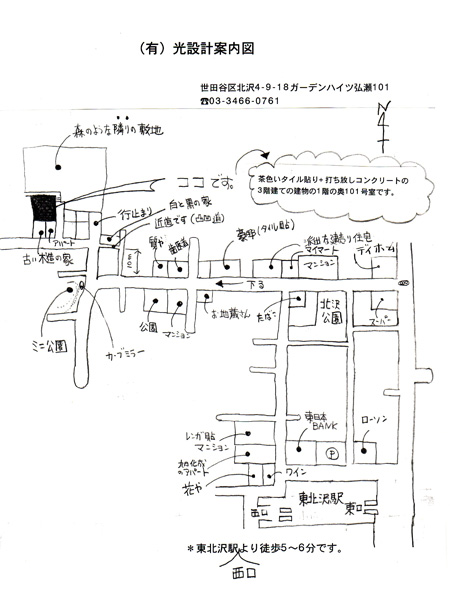 (有)光設計案内図
世田谷区北沢4-9-18ガーデンハイツ弘瀬101
☎03-3466-0761
N
森のような隣りの敷地
茶色いタイル貼り+打ち放しコンクリートの
3階建ての建物の1階の奥101号室です。
ココです。
白と黒の家
行止まり
近道です(凸凹道)
アパート
古い木造の家
10m
歯医者
豪邸(タイル貼)
マイマート
マンション
デイホーム
下る
ミニ公園
カーブミラー
公園
マンション
お地蔵さん
たばこ
北沢
公園
スーパー
レンガ貼
マンション
旭化成
のアパート
花や
ワイン
東日本
BANK
P
ローソン
東北沢駅
西口
東口
*東北沢駅より徒歩5~6分です。
西口